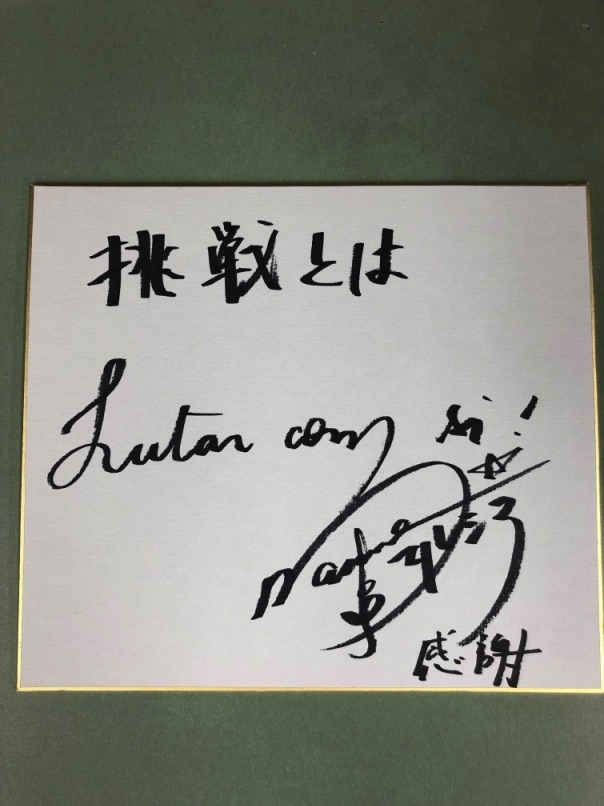 挑戦とは
Lutar com si!
感謝